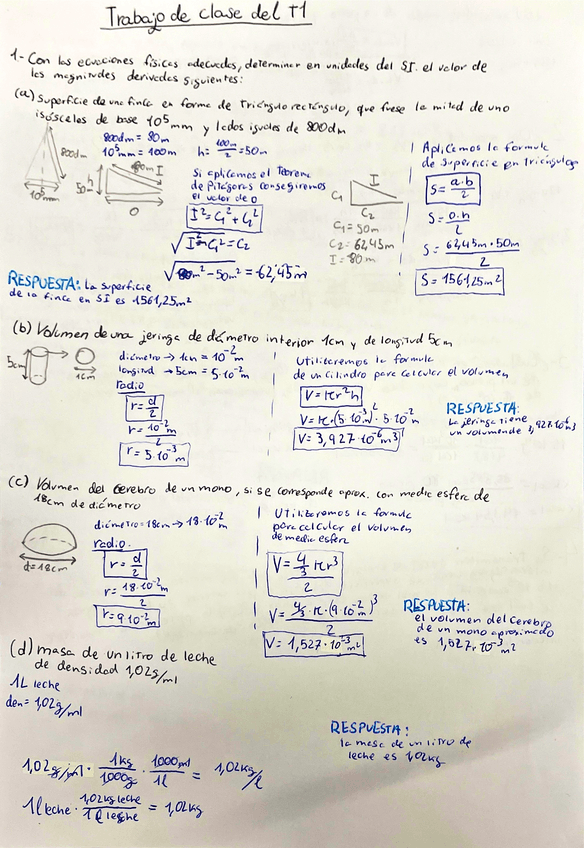 Trabajo de clase del T1
1- Con las ecuaciones físicas adecuadas, determinar en unidades del SI. el valor de
las magnitudes derivadas siguientes:
(a) Superficie de una finca en forma de triángulo rectángulo, que fuese la mitad de uno
isósceles de base 10⁵mm y lados iguales de 800dm
800dm
10⁵mm
800dm = 80m
10⁵mm = 100m
h = 100m/2 = 50m
50m
h
80m I
O
Si aplicamos el Teorema
de Pitágoras conseguiremos
el valor de O
I² = C₁² + C₂²
√I² - C₁² = C₂
√80m² - 50m² = 62,45m
C₁
I
C₂
C₁ = 50m
C₂ = 62,45m
I = 80m
Aplicamos la formula
de superficie en triángulos
S = a·b/2
S = o·h/2
S = 62,45m · 50m/2
S = 1561,25m²
RESPUESTA: La superficie
de la finca en SI es 1561,25m²
(b) Volumen de una jeringa de diámetro interior 1cm y de longitud 5cm
5cm
1cm
diámetro → 1cm = 10⁻²m
longitud → 5cm = 5·10⁻²m
radio
r = d/2
r = 10⁻²m/2
r = 5·10⁻³m
Utilizaremos la formula
de un cilindro para calcular el volumen
V = πr²h
V = π·(5·10⁻³m)²·5·10⁻²m
V = 3,927·10⁻⁶m³
RESPUESTA:
La jeringa tiene
un volumen de 3,927·10⁻⁶m³
(c) Volumen del cerebro de un mono, si se corresponde aprox. con media esfera de
18cm de diámetro
d = 18cm
diámetro = 18cm → 18·10⁻²m
radio.
r = d/2
r = 18·10⁻²m/2
r = 9·10⁻²m
Utilizaremos la formula
para calcular el volumen
de media esfera
V = 4/3 πr³/2
V = 4/3·π·(9·10⁻²m)³/2
V = 1,527·10⁻³m²
RESPUESTA:
el volumen del cerebro
de un mono aproximado
es 1,527·10⁻³m²
(d) masa de un litro de leche
de densidad 1,02g/ml
1L leche
den = 1,02g/ml
1,02g/ml · 1kg/1000g · 1000ml/1l = 1,02kg/l
1l leche · 1,02kg leche/1l leche = 1,02kg
RESPUESTA:
la masa de un litro de
leche es 1,02kg